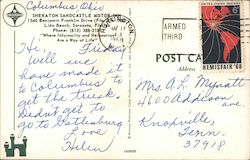 Columbus Ohio
SHERATON SANDCASTLE MOTOR INN
1540 Benjamin Franklin Drive
Lido Beach, Sarasota, Florida
Phone: (813) 388-2181
"Where Informality and Relaxation
Are a Way of Life"
Hi, Friday
Well we
have made it
to Columbus to
get the truck.
Didnt get to
go to Gatlinburg
Love
Helen
ARMED
THIRD
UNITED STATES POSTAGE
HEMISFAIR '68
POST CA
Mrs. A. L. Mynatt
4600 Addison
ave
Knoxville,
Tenn.
37918